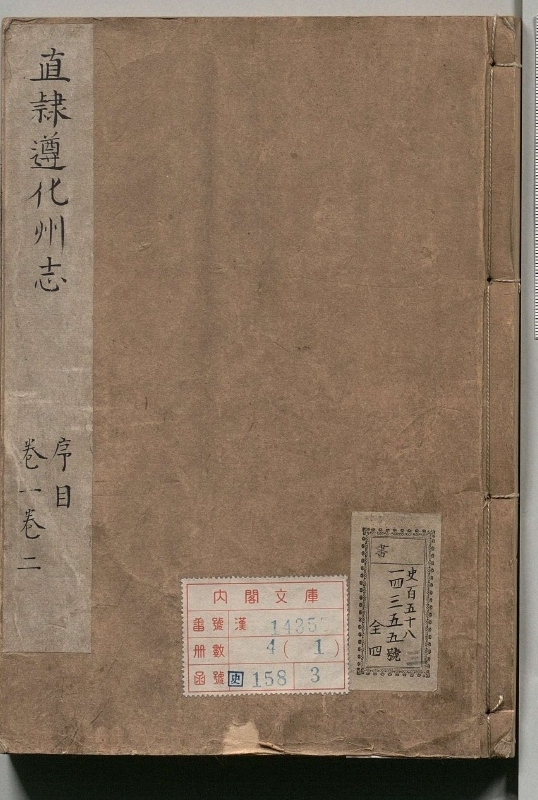 直隷遵化州志
序目
卷一卷二
書
史百五十八
一四三五五號
全四
内閣文庫
番號 漢 1435
册數 4(1)
函號 史 158 3